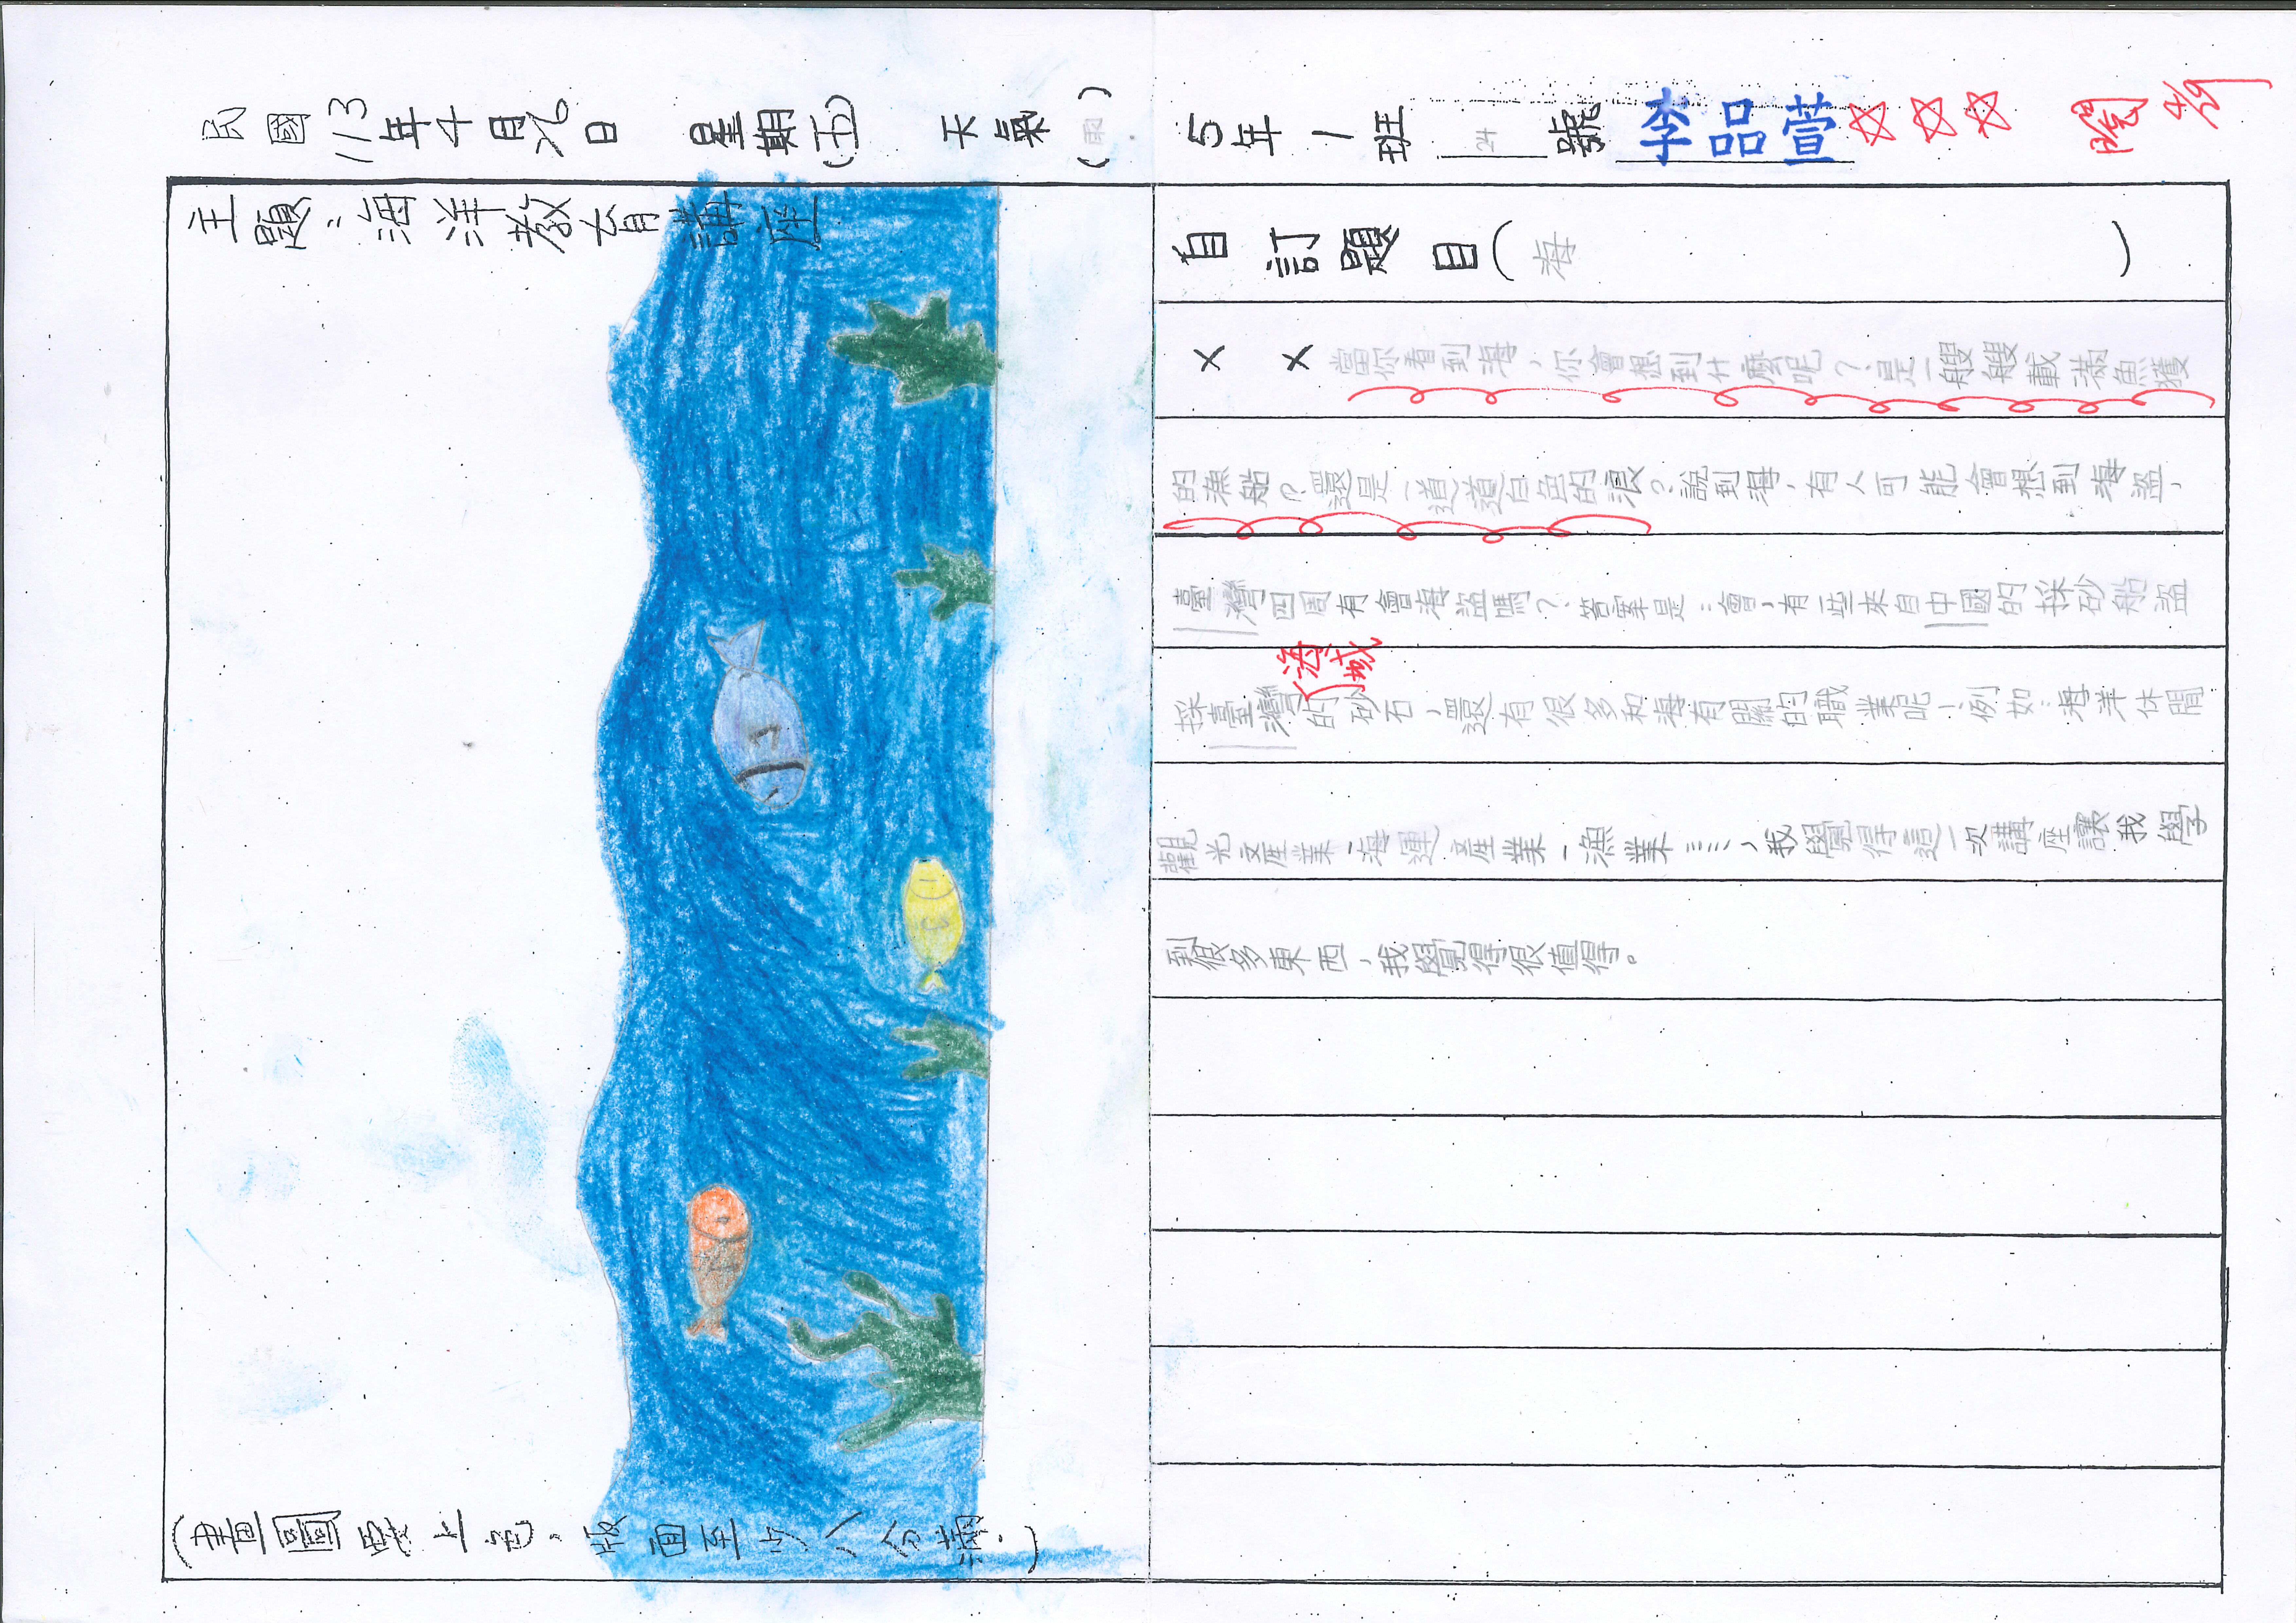 民國113年4月26日 星期(五) 天氣(雨)
主題：海洋教育講座
(畫圖要上色，版面至少八分滿。)
5年1班 24 號 李品萱 ☆☆☆ 4/29
自訂題目(海)
××當你看到海，你會想到什麼呢？是一艘艘載滿魚獲
的漁船？還是一道道白色的浪？說到海，有人可能會想到海盜，
臺灣四周有會海盜嗎？答案是：會，有一些來自中國的採砂船盜
海域
採臺灣的砂石，還有很多和海有關的職業呢！例如：海洋休閒
觀光產業、海運產業、漁業……，我覺得這一次講座讓我學
到很多東西，我覺得很值得。